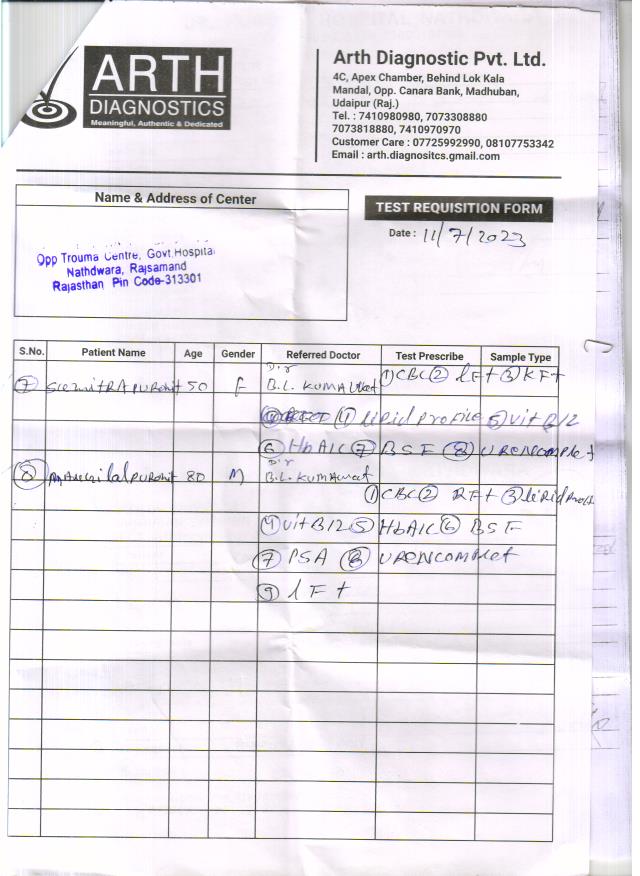 ARTH
DIAGNOSTICS
Meaningful, Authentic & Dedicated
Arth Diagnostic Pvt. Ltd.
4C, Apex Chamber, Behind Lok Kala
Mandal, Opp. Canara Bank, Madhuban,
Udaipur (Raj.)
Tel. : 7410980980, 7073308880
7073818880, 7410970970
Customer Care : 07725992990, 08107753342
Email : arth.diagnositcs.gmail.com
Name & Address of Center
Opp Trouma Centre, Govt.Hospital
Nathdwara, Rajsamand
Rajasthan Pin Code-313301
TEST REQUISITION FORM
Date : 11/7/2023
S.No. Patient Name Age Gender Referred Doctor Test Prescribe Sample Type
7 PUROhit 50 F Dir B.L. KUMAWat 1 CBC 2 lFt 3 KFt
4 liPid ProFile 5 Vit B12
6 HbA1C 7 BSF 8 URENCOMPlet
8 PUROhit 80 M Dir B.L. KUMAWat
1 CBC 2 RFt 3 liPid
4 vit B12 5 HbA1C 6 BSF
7 PSA 8 URENCOMPlet
9 lFt